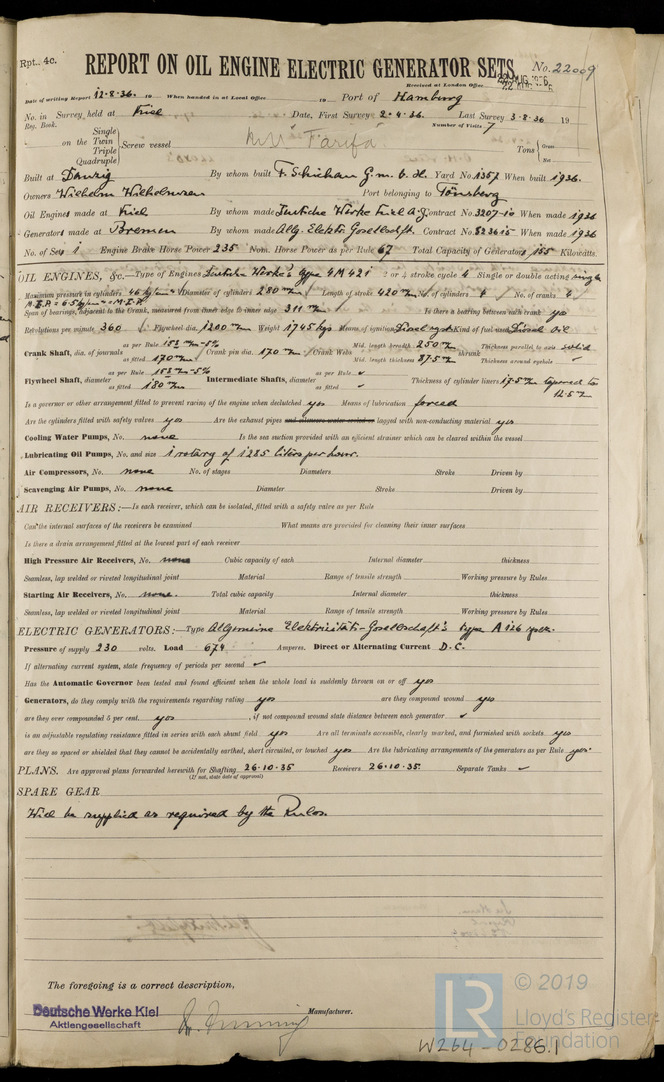 Rpt. 4c.
REPORT ON OIL ENGINE ELECTRIC GENERATOR SETS
No. 22009
Received at London Office
22 AUG 1936
Date of writing Report 12.8.36. 19 When handed in at Local Office 19 Port of Hamburg
No. in Reg. Book. Survey held at Kiel Date, First Survey 2.4.36. Last Survey 3-8-36 19
Number of Visits 7
on the Single Twin Triple Quadruple Screw vessel M.V. Tarifa Tons Gross Net
Built at Danzig By whom built F. Schichau G.m.b.H. Yard No. 1357 When built 1936.
Owners Wilhelm Wilhelmsen Port belonging to Tönsberg
Oil Engines made at Kiel By whom made Deutsche Werke Kiel A.G. Contract No. 3207-10 When made 1936
Generators made at Bremen By whom made Allg. Elektr. Gesellsch. Contract No. 823615 When made 1936
No. of Sets 1 Engine Brake Horse Power 235 Nom. Horse Power as per Rule 67 Total Capacity of Generators 155 Kilowatts.
OIL ENGINES, &c.—Type of Engines Deutsche Werke's type 4M 42i 2 or 4 stroke cycle 4 Single or double acting single
Maximum pressure in cylinders 46 kg/cm² Diameter of cylinders 280 m/m Length of stroke 420 m/m No. of cylinders 4 No. of cranks 4
Span of bearings, adjacent to the Crank, measured from inner edge to inner edge 311 m/m Is there a bearing between each crank yes
Revolutions per minute 360 Flywheel dia. 1200 m/m Weight 1745 kgs Means of ignition Diesel cycle Kind of fuel used Diesel oil
Crank Shaft, dia. of journals as per Rule 153 m/m-5% as fitted 170 m/m Crank pin dia. 170 m/m Crank Webs Mid. length breadth 250 m/m Mid. length thickness 87.5 m/m shrunk Thickness parallel to axis solid Thickness around eyehole
Flywheel Shaft, diameter as per Rule 153 m/m-5% as fitted 180 m/m Intermediate Shafts, diameter as per Rule ✓ as fitted ✓ Thickness of cylinder liners 19.5 m/m tapered to 12.5 m/m
Is a governor or other arrangement fitted to prevent racing of the engine when declutched yes Means of lubrication forced
Are the cylinders fitted with safety valves yes Are the exhaust pipes and silencers water cooled or lagged with non-conducting material yes
Cooling Water Pumps, No. none Is the sea suction provided with an efficient strainer which can be cleared within the vessel
Lubricating Oil Pumps, No. and size 1 rotary of 1285 liters per hour.
Air Compressors, No. none No. of stages Diameters Stroke Driven by
Scavenging Air Pumps, No. none Diameter Stroke Driven by
AIR RECEIVERS:—Is each receiver, which can be isolated, fitted with a safety valve as per Rule
Can the internal surfaces of the receivers be examined What means are provided for cleaning their inner surfaces
Is there a drain arrangement fitted at the lowest part of each receiver
High Pressure Air Receivers, No. none Cubic capacity of each Internal diameter thickness
Seamless, lap welded or riveted longitudinal joint Material Range of tensile strength Working pressure by Rules
Starting Air Receivers, No. none. Total cubic capacity Internal diameter thickness
Seamless, lap welded or riveted longitudinal joint Material Range of tensile strength Working pressure by Rules
ELECTRIC GENERATORS:—Type Allgemeine Elektricitäts-Gesellschaft's type A 126
Pressure of supply 230 volts. Load 674 Amperes. Direct or Alternating Current D.C.
If alternating current system, state frequency of periods per second ✓
Has the Automatic Governor been tested and found efficient when the whole load is suddenly thrown on or off yes
Generators, do they comply with the requirements regarding rating yes are they compound wound yes
are they over compounded 5 per cent. yes , if not compound wound state distance between each generator ✓
is an adjustable regulating resistance fitted in series with each shunt field yes Are all terminals accessible, clearly marked, and furnished with sockets yes
are they so spaced or shielded that they cannot be accidentally earthed, short circuited, or touched yes Are the lubricating arrangements of the generators as per Rule yes.
PLANS. Are approved plans forwarded herewith for Shafting 26.10.35 Receivers 26.10.35. Separate Tanks ✓
(If not, state date of approval)
SPARE GEAR
Will be supplied as required by the Rules.
The foregoing is a correct description,
Deutsche Werke Kiel
Aktiengesellschaft
Manufacturer.
LR
© 2019
Lloyd's Register
Foundation
W264-0286.1